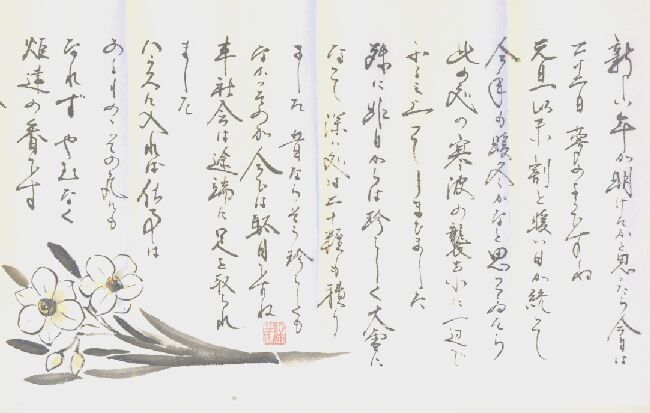 新しい年が明けたかと思ったら今日は
二十一日 夢のようですね
元旦以来割と暖い日が続いて
今年も暖冬かなと思ってゐたら
此の度の寒波の襲来に一辺で
ふるえ上ってしまいました
殊に昨日からは珍らしく大雪に
なって 深い処は二十糎も積り
ました 昔ならそう珍らしくも
なかったのが今では駄目ですね
車社会は途端に足を取られ
ました
ハウスに入れば仕事は
あるものの その気にも
なれず やむなく
炬達の番です